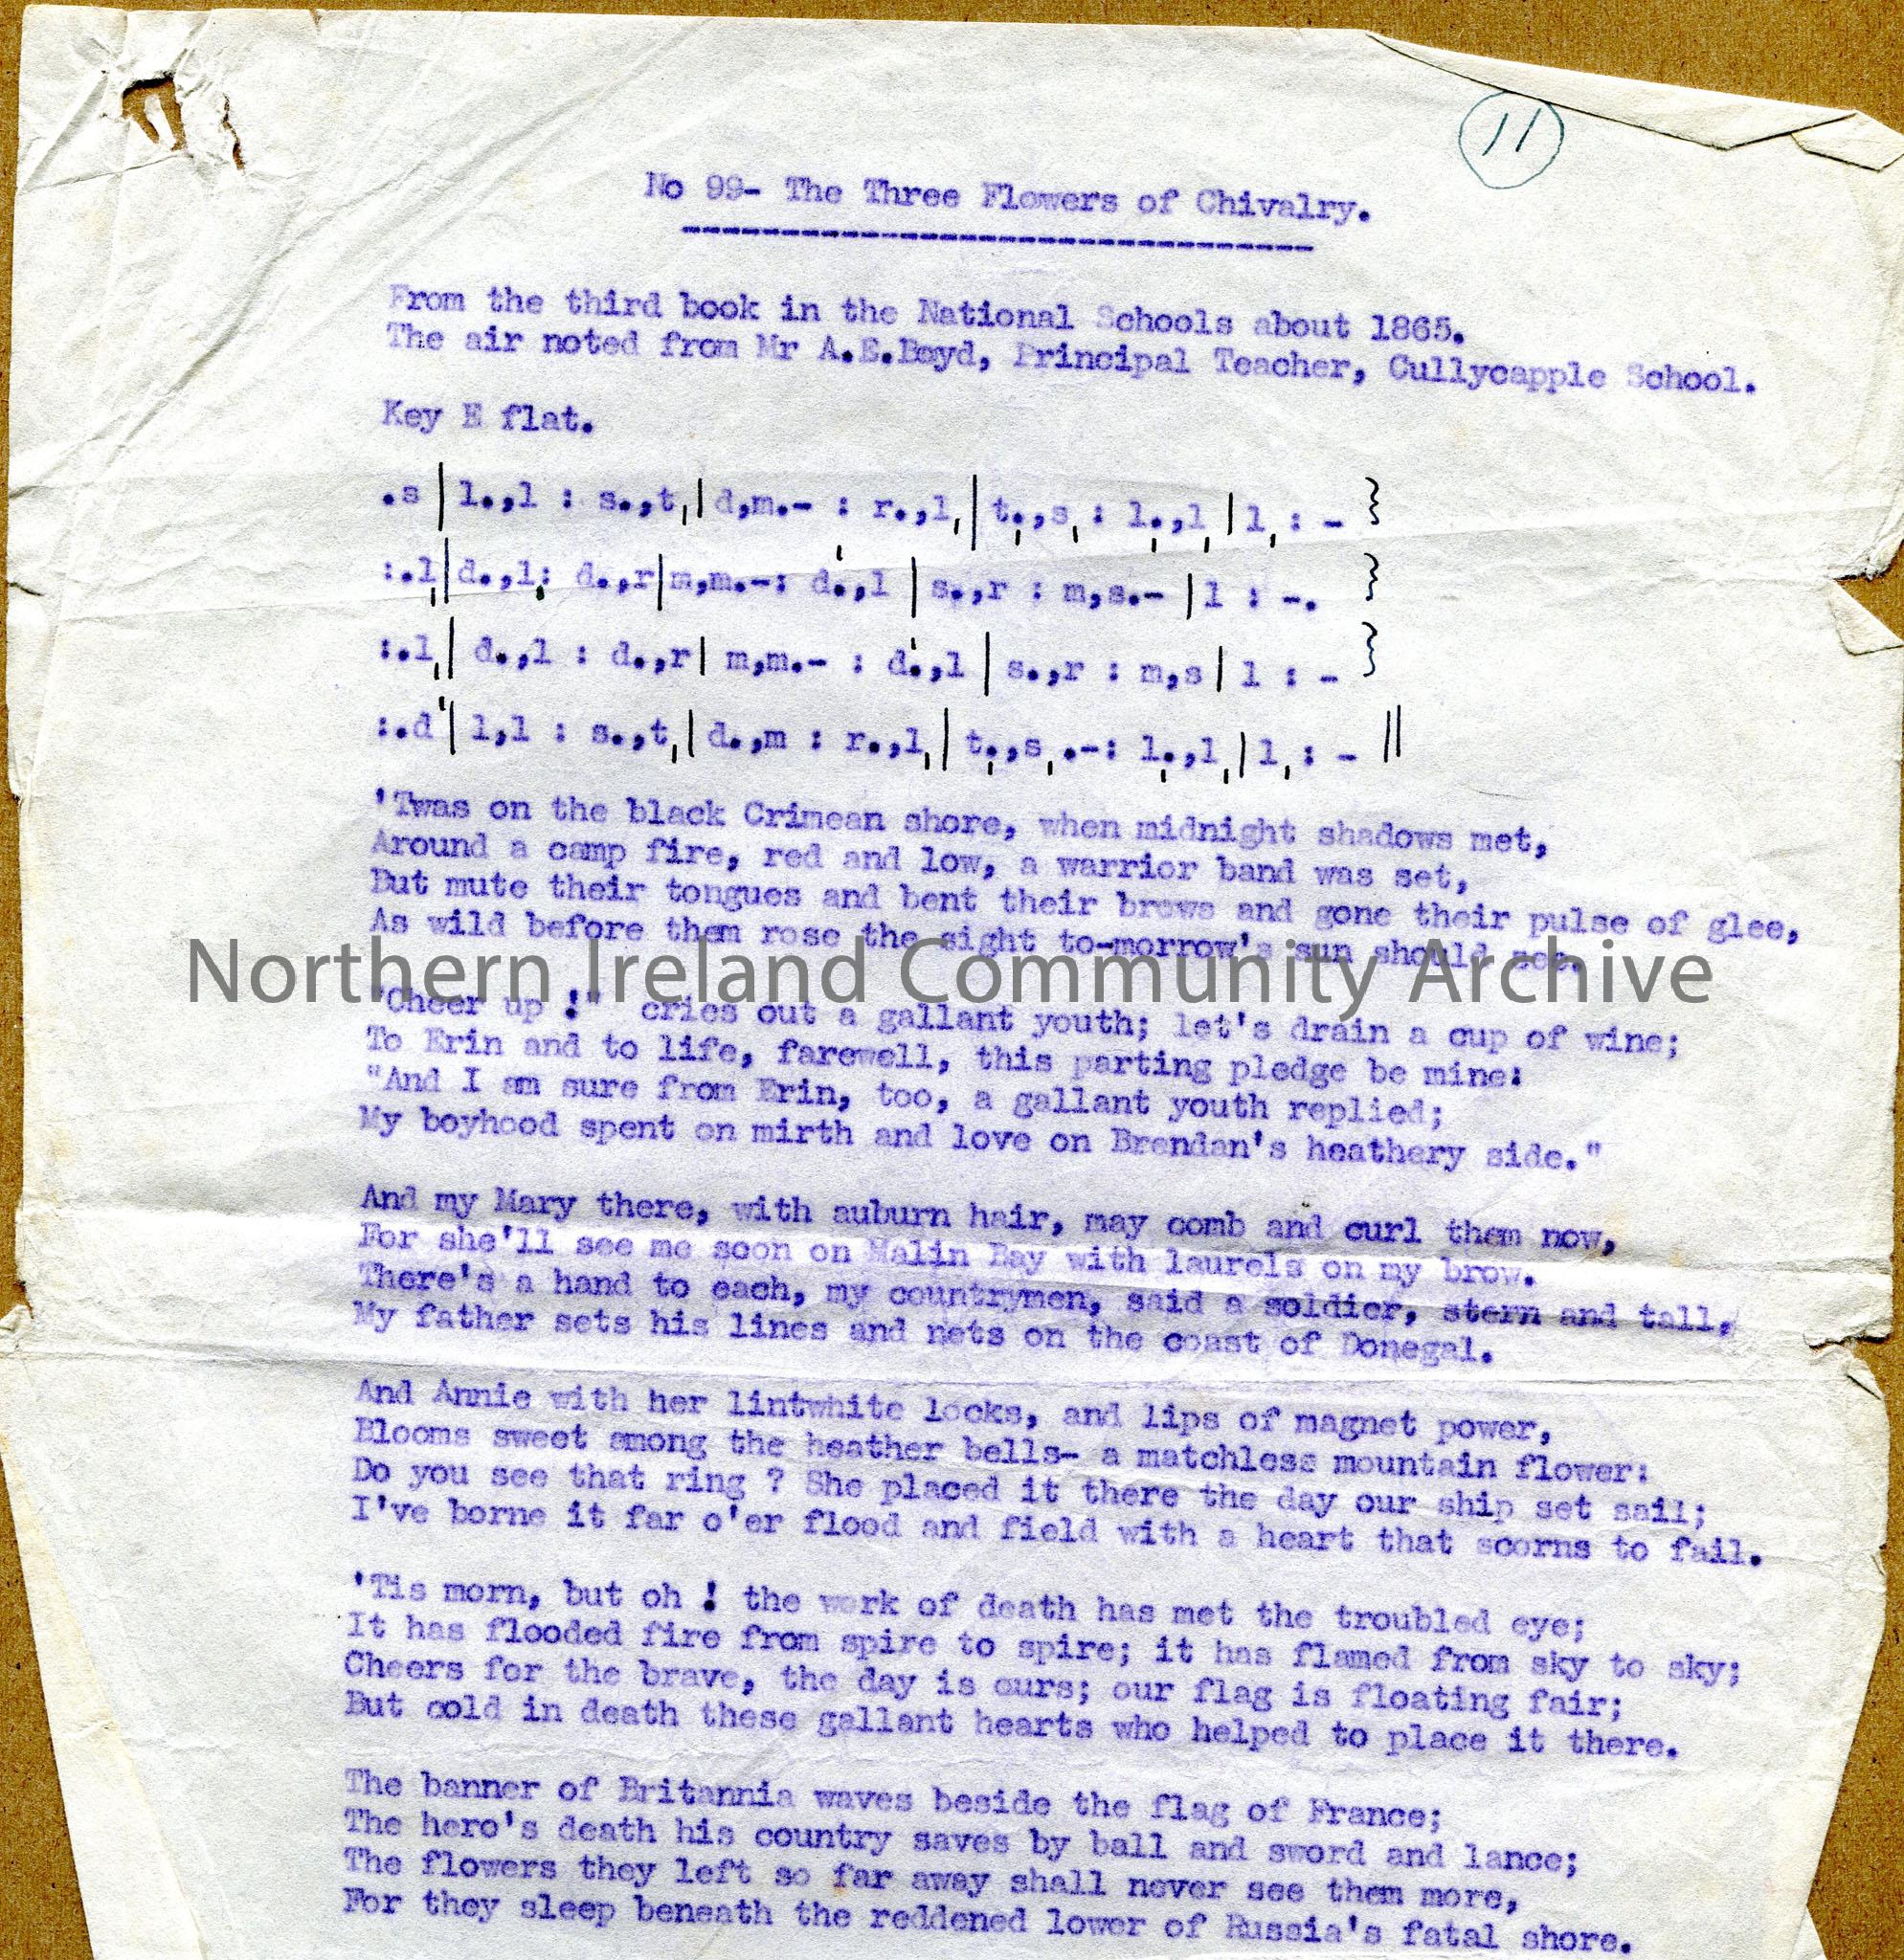 11
No 99- The Three Flowers of Chivalry.
From the third book in the National Schools about 1865.
The air noted from Mr A.E.Boyd, Principal Teacher, Cullycapple School.
Key E flat.
.s | l.,l : s.,t, | d,m.- : r.,l, | t,.,s, : l,.,l, | l, : - }
:.l, | d.,l, : d.,r | m,m.- : d'.,l | s.,r : m,s.- | l : -. }
:.l, | d.,l : d.,r | m,m.- : d'.,l | s.,r : m,s | l : - }
:.d' | l,l : s.,t, | d.,m : r.,l, | t,.,s, .-: l,.,l, | l, : - ||
'Twas on the black Crimean shore, when midnight shadows met,
Around a camp fire, red and low, a warrior band was set,
But mute their tongues and bent their brows and gone their pulse of glee,
As wild before them rose the sight to-morrow's sun should see.
Northern Ireland Community Archive
"Cheer up !" cries out a gallant youth; let's drain a cup of wine;
To Erin and to life, farewell, this parting pledge be mine:
"And I am sure from Erin, too, a gallant youth replied;
My boyhood spent on mirth and love on Brendan's heathery side."
And my Mary there, with auburn hair, may comb and curl them now,
For she'll see me soon on Malin Bay with laurels on my brow.
There's a hand to each, my countrymen, said a soldier, stern and tall,
My father sets his lines and nets on the coast of Donegal.
And Annie with her lintwhite locks, and lips of magnet power,
Blooms sweet among the heather bells- a matchless mountain flower:
Do you see that ring ? She placed it there the day our ship set sail;
I've borne it far o'er flood and field with a heart that scorns to fail.
'Tis morn, but oh ! the work of death has met the troubled eye;
It has flooded fire from spire to spire; it has flamed from sky to sky;
Cheers for the brave, the day is ours; our flag is floating fair;
But cold in death these gallant hearts who helped to place it there.
The banner of Britannia waves beside the flag of France;
The hero's death his country saves by ball and sword and lance;
The flowers they left so far away shall never see them more,
For they sleep beneath the reddened lower of Russia's fatal shore.